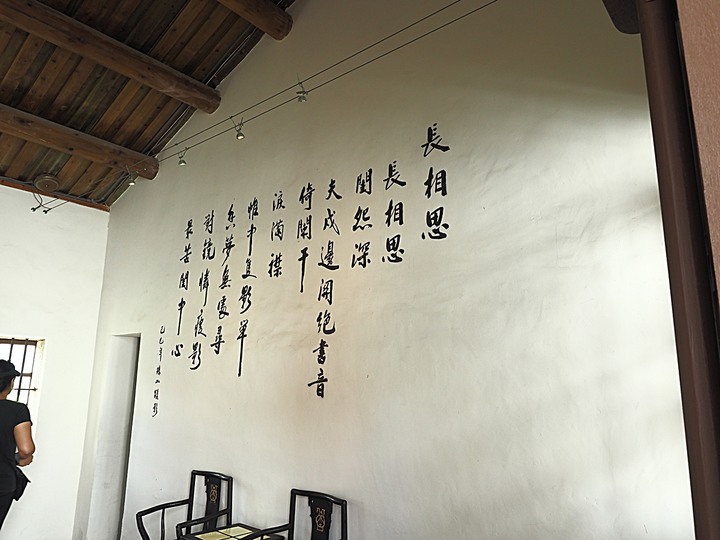 長相思
長相思
閨怨深
夫戍邊關絕書音
倚闌干
淚滿襟
帷中隻影單
夢無處尋
對鏡憐瘦影
最苦閨中心